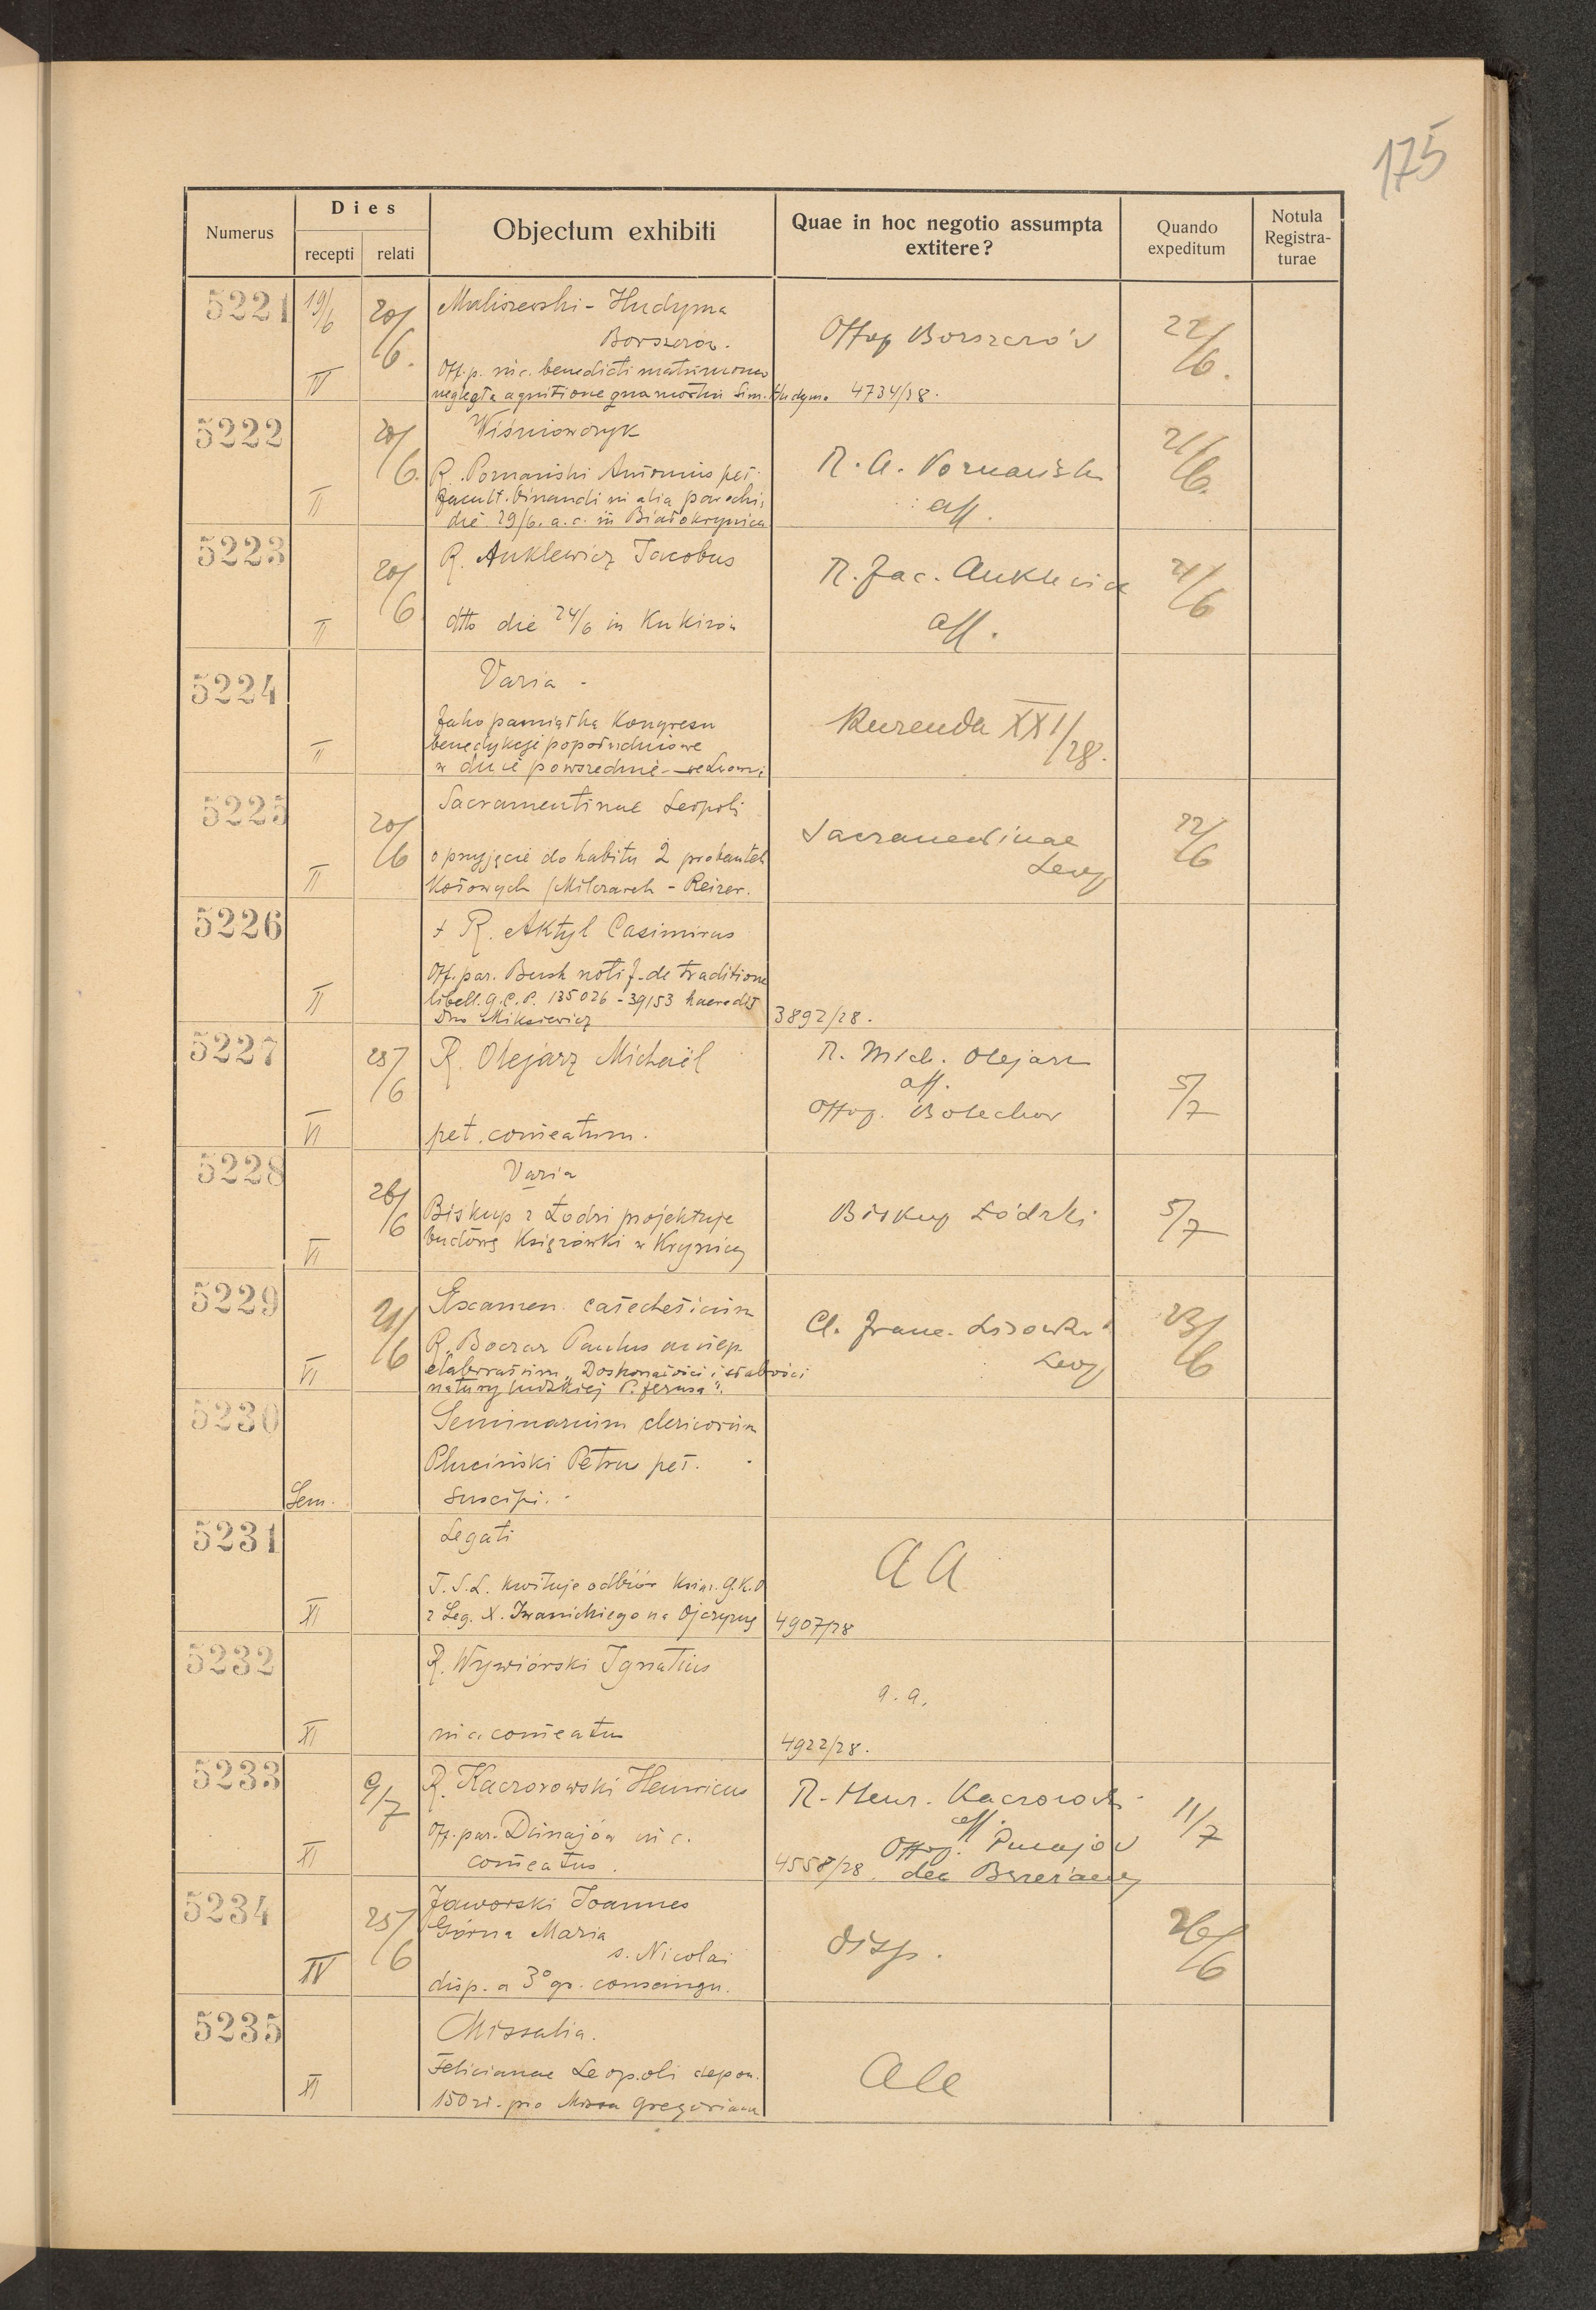 175
Numerus
Dies
recepti
relati
Objectum exhibiti
Quae in hoc negotio assumpta
extitere?
Quando
expeditum
Notula
Registra-
turae
5221
19/6
20/6.
IV
Maliszewski - Hudyma
Borszczów.
Off. p. in c. benedicti matrimonio
neglecta agnitione Sim. Hudyma 4734/28.
Offop Borszczów
22/6.
5222
20/6.
II
Wiśniowczyk
R. Poznański Antonius pet.
facult. binandi in alia parochia
die 29/6. a.c. in Białokrynica
R. A. Poznański
aff.
21/6.
5223
20/6
II
R. Anklewicz Jacobus
dtto die 24/6 in Kukizów
R. Jac. Anklewicz
aff.
21/6
5224
II
Varia -
Jako pamiątka Kongresu
benedykcje popołudniowe
w dnie powszednie - we Lwowie
Kurenda XXI/28.
5225
20/6
II
Sacramentinae Leopoli
o przyjęcie do habitu 2 probantek
Kołowych (Milczarek - Reizer.
Sacramentinae
Leop
22/6
5226
II
+ R. Aktyl Casimirus
Off. par. Busk notif. de traditione
libell. g.C.P. 135026 - 39153 haeredis
Dno Miksiewicz
3892/28.
5227
25/6
VI
R. Olejarz Michaël
pet. comeatum.
R. Mich. Olejarz
aff.
Offop. Bolechow
5/7
5228
26/6
VI
Varia
Biskup z Łodzi projektuje
budowę Księżówki w Krynicy
Biskup Łódzki
5/7
5229
21/6
VI
Examen catecheticum
R. Boczar Paulus
elaboratum "Doskonałości i słabości
natury ludzkiej P. Jezusa".
Cl. Franc. Lisowski
Leop
23/6
5230
Sem.
Seminarium clericorum
Pluciński Petrus pet.
suscipi.
5231
XI
Legati
T.S.L. kwituje odbiór Ksiąz. G.K.O
z Leg. X. Iwanickiego na Ojczyznę
4907/28
AA
5232
XI
R. Wywiórski Ignatius
in c. comeatus
a.a.
4922/28.
5233
9/7
XI
R. Kaczorowski Henricus
Off. par. Dunajów in c.
comeatus.
R. Henr. Kaczorowski
aff.
Offop. Dunajów
4558/28. dec Brzeżany
11/7
5234
25/6
IV
Jaworski Joannes
Górna Maria
s. Nicolai
disp. a 3° gr. consangu.
disp.
26/6
5235
XI
Missalia.
Felicianae Leopoli depon.
150 zł. pro Missa Gregoriana